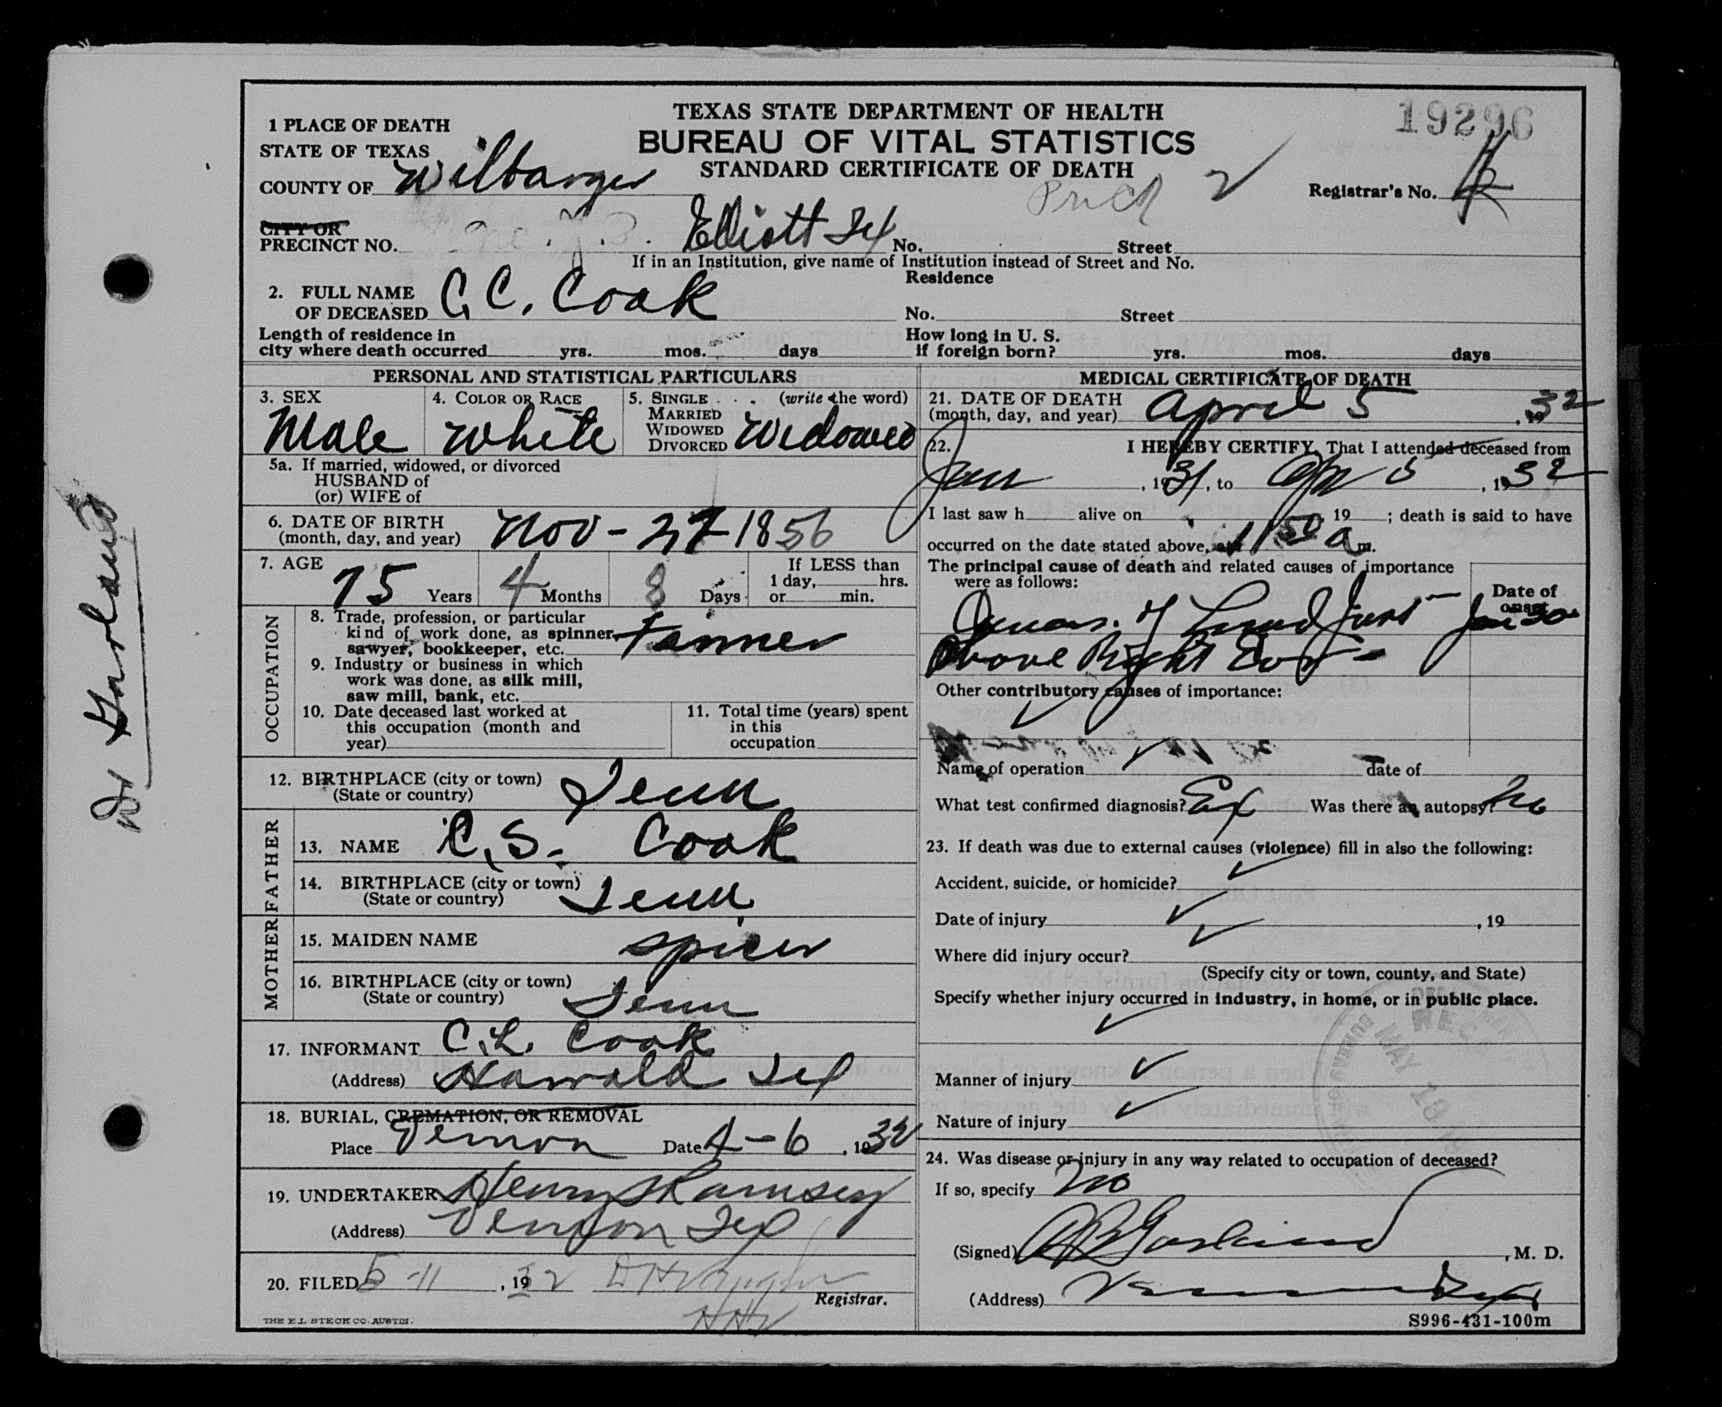 TEXAS STATE DEPARTMENT OF HEALTH
BUREAU OF VITAL STATISTICS
STANDARD CERTIFICATE OF DEATH
19296
1 PLACE OF DEATH
STATE OF TEXAS
COUNTY OF Wilbarger
Registrar's No.
CITY OR
PRECINCT NO. Elliott Tex No. Street
If in an Institution, give name of Institution instead of Street and No.
Residence
2. FULL NAME
OF DECEASED C. C. Cook No. Street
Length of residence in
city where death occurred yrs. mos. days
How long in U. S.
if foreign born? yrs. mos. days
PERSONAL AND STATISTICAL PARTICULARS
3. SEX
Male
4. COLOR OR RACE
White
5. SINGLE . . . (write the word)
MARRIED
WIDOWED
DIVORCED Widowed
5a. If married, widowed, or divorced
HUSBAND of
(or) WIFE of
6. DATE OF BIRTH
(month, day, and year) Nov - 27 - 1856
7. AGE
75 Years 4 Months 8 Days
If LESS than
1 day, hrs.
or min.
OCCUPATION
8. Trade, profession, or particular
kind of work done, as spinner,
sawyer, bookkeeper, etc. Farmer
9. Industry or business in which
work was done, as silk mill,
saw mill, bank, etc.
10. Date deceased last worked at
this occupation (month and
year)
11. Total time (years) spent
in this
occupation
12. BIRTHPLACE (city or town)
(State or country) Tenn
FATHER
13. NAME C. S. Cook
14. BIRTHPLACE (city or town)
(State or country) Tenn
MOTHER
15. MAIDEN NAME Spicer
16. BIRTHPLACE (city or town)
(State or country) Tenn
17. INFORMANT C. L. Cook
(Address) Harrold Tex
18. BURIAL, CREMATION, OR REMOVAL
Place Vernon Date 4-6, 1932
19. UNDERTAKER Henry Ramsey
(Address) Vernon Tex
20. FILED 5-11, 1932
Registrar.
THE E.L. STECK CO. AUSTIN.
MEDICAL CERTIFICATE OF DEATH
21. DATE OF DEATH
(month, day, and year) April 5, 1932
22. I HEREBY CERTIFY, That I attended deceased from
Jan, 1931, to Apr 5, 1932
I last saw h alive on 19 ; death is said to have
occurred on the date stated above, at 1150 a m.
The principal cause of death and related causes of importance
were as follows:
Date of
onset
Above Right
Other contributory causes of importance:
Name of operation date of
What test confirmed diagnosis? Ex Was there an autopsy? No
23. If death was due to external causes (violence) fill in also the following:
Accident, suicide, or homicide?
Date of injury , 19
Where did injury occur?
(Specify city or town, county, and State)
Specify whether injury occurred in industry, in home, or in public place.
Manner of injury
Nature of injury
24. Was disease or injury in any way related to occupation of deceased?
If so, specify No
(Signed) , M. D.
(Address) Vernon Tex
S996-431-100m